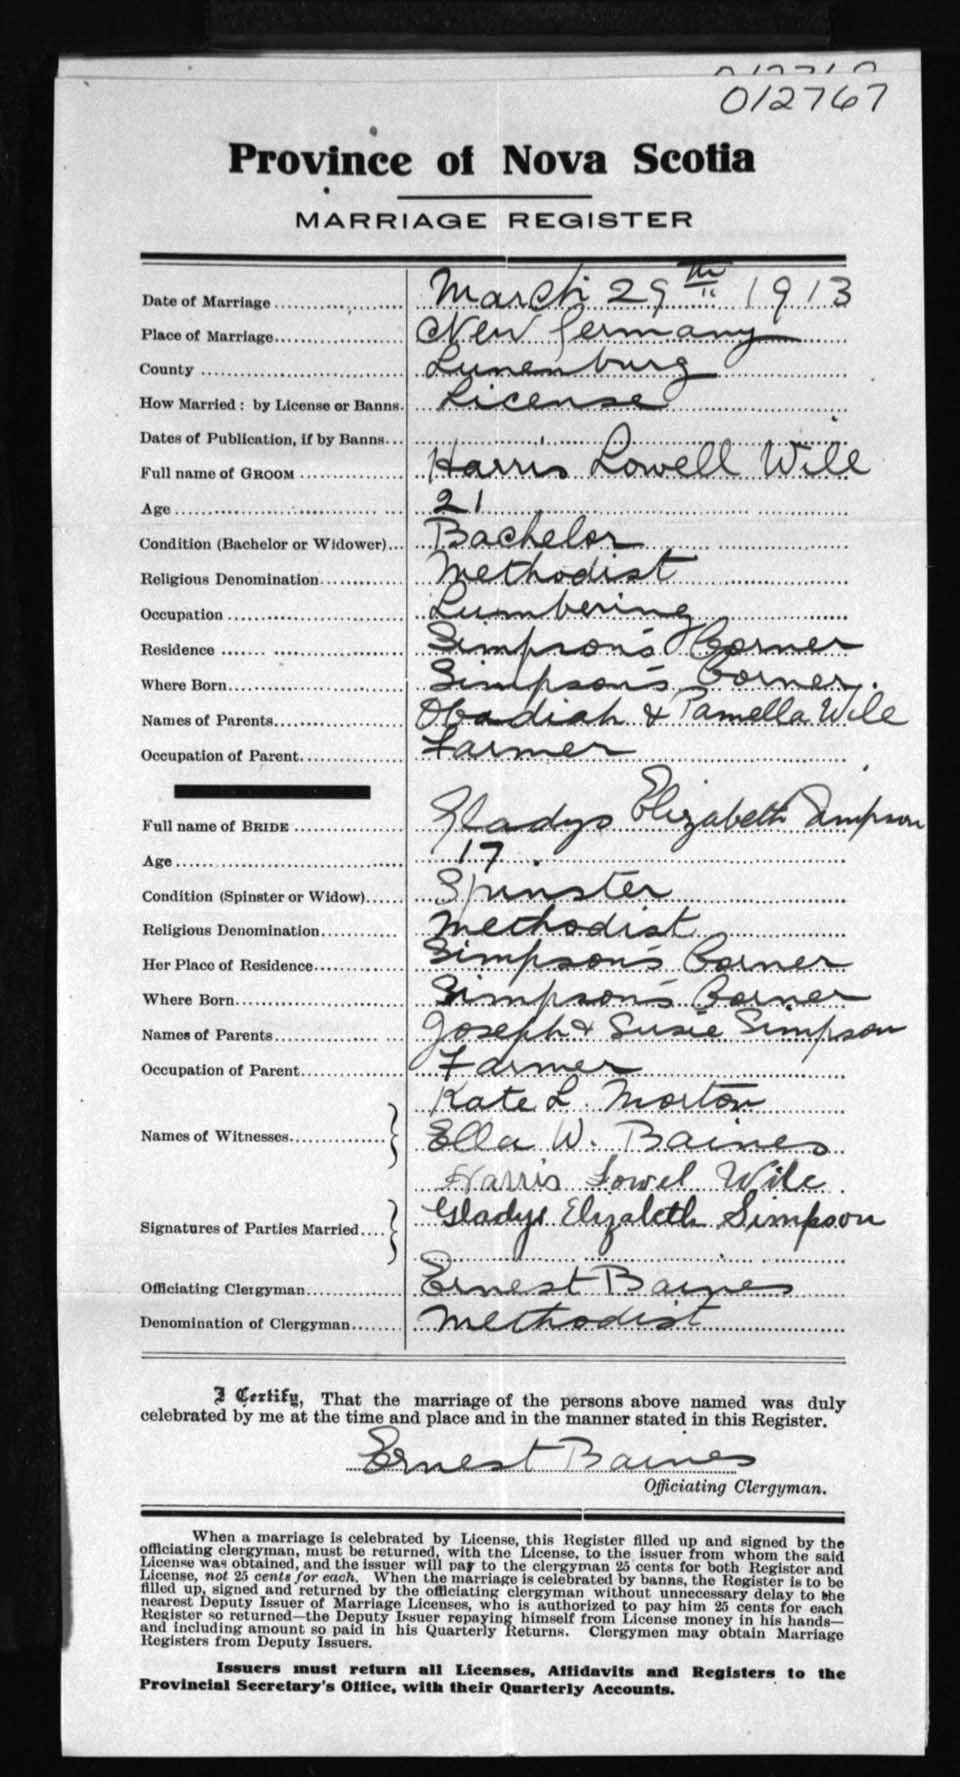 012767
Province of Nova Scotia
MARRIAGE REGISTER
Date of Marriage March 29th 1913
Place of Marriage New Germany
County Lunenburg
How Married: by License or Banns. License
Dates of Publication, if by Banns
Full name of GROOM Harris Lowell Wile
Age 21
Condition (Bachelor or Widower) Bachelor
Religious Denomination Methodist
Occupation Lumbering
Residence Simpson's Corner
Where Born Simpson's Corner.
Names of Parents Obadiah & Pamella Wile
Occupation of Parent Farmer
Full name of BRIDE Gladys Elizabeth Simpson
Age 17
Condition (Spinster or Widow) Spinster
Religious Denomination Methodist
Her Place of Residence Simpson's Corner
Where Born Simpson's Corner
Names of Parents Joseph & Susie Simpson
Occupation of Parent Farmer
Kate L. Morton
Names of Witnesses Ella W. Baines
Harris Lowel Wile
Signatures of Parties Married Gladys Elizabeth Simpson
Officiating Clergyman Ernest Baines
Denomination of Clergyman Methodist
I Certify, That the marriage of the persons above named was duly
celebrated by me at the time and place and in the manner stated in this Register.
Ernest Baines
Officiating Clergyman.
When a marriage is celebrated by License, this Register filled up and signed by the
officiating clergyman, must be returned, with the License, to the issuer from whom the said
License was obtained, and the issuer will pay to the clergyman 25 cents for both Register and
License, not 25 cents for each. When the marriage is celebrated by banns, the Register is to be
filled up, signed and returned by the officiating clergyman without unnecessary delay to the
nearest Deputy Issuer of Marriage Licenses, who is authorized to pay him 25 cents for each
Register so returned—the Deputy Issuer repaying himself from License money in his hands—
and including amount so paid in his Quarterly Returns. Clergymen may obtain Marriage
Registers from Deputy Issuers.
Issuers must return all Licenses, Affidavits and Registers to the
Provincial Secretary's Office, with their Quarterly Accounts.